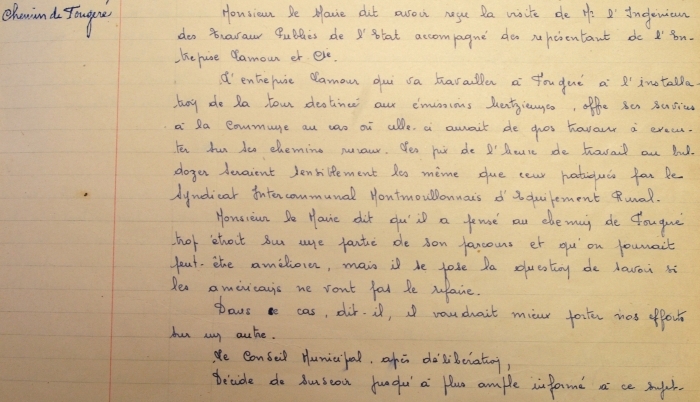 Chemin de Fougeré
Monsieur le Maire dit avoir reçu la visite de Mr l'Ingénieur
des Travaux Publics de l'Etat accompagné des représentant de l'En-
treprise Lamour et Cie.
L'entreprise Lamour qui va travailler à Fougeré à l'installa-
tion de la tour destinée aux émissions hertziennes, offre ses services
à la Commune au cas où celle-ci aurait de gros travaux à exécu-
ter sur ses chemins ruraux. Les prix de l'heure de travail au bul-
dozer seraient sensiblement les même que ceux pratiqués par le
Syndicat Intercommunal Montmorillonnais d'Equipement Rural.
Monsieur le Maire dit qu'il a pensé au chemin de Fougeré
trop étroit sur une partie de son parcours et qu'on pourrait
peut-être améliorer, mais il se pose la question de savoir si
les américains ne vont pas le refaire.
Dans ce cas, dit-il, il vaudrait mieux porter nos efforts
sur un autre.
Le Conseil Municipal, après délibération,
Décide de surseoir jusqu'à plus ample informé à ce sujet.